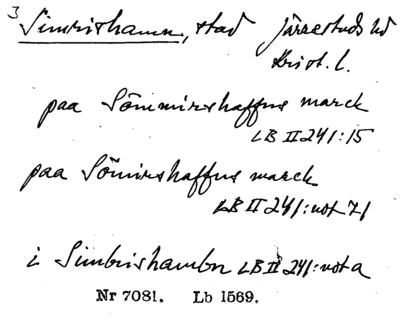 3 Simrishamn, stad Järrestads hd
Krist. l.
paa Sömmirshaffns marck
LB II 241:15
paa Sömirshaffns marck
LB II 241:not 71
i Simbrishambn LB II 241:not a
Nr 7081. Lb 1569.